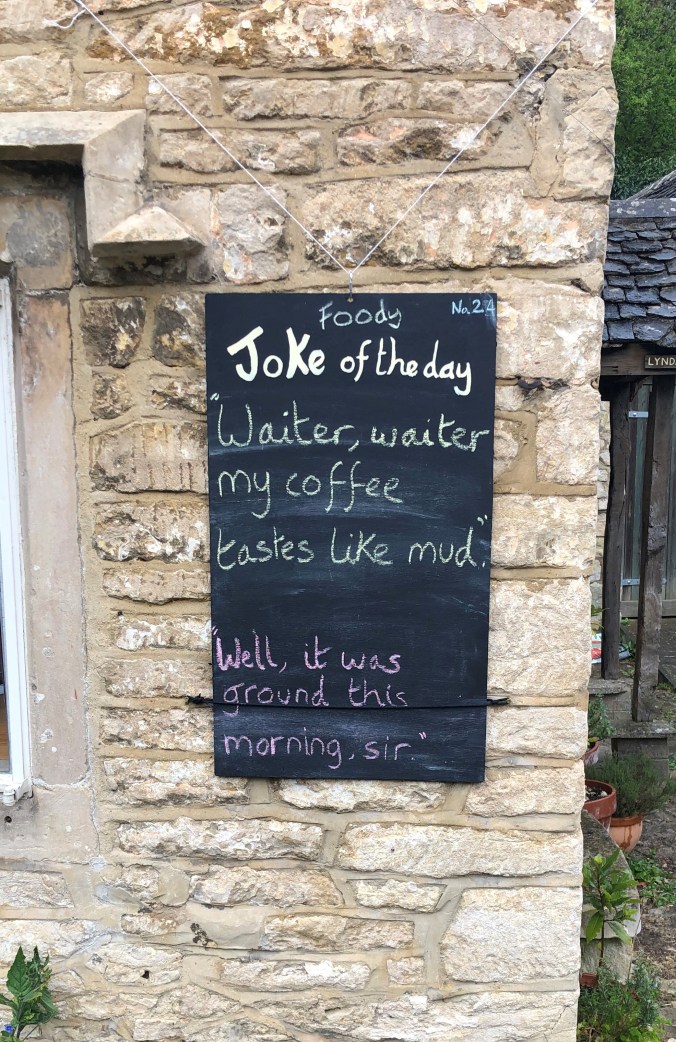 Foody
No. 24
Joke of the day
"Waiter, waiter
my coffee
tastes like mud."
"Well, it was
ground this
morning, sir."